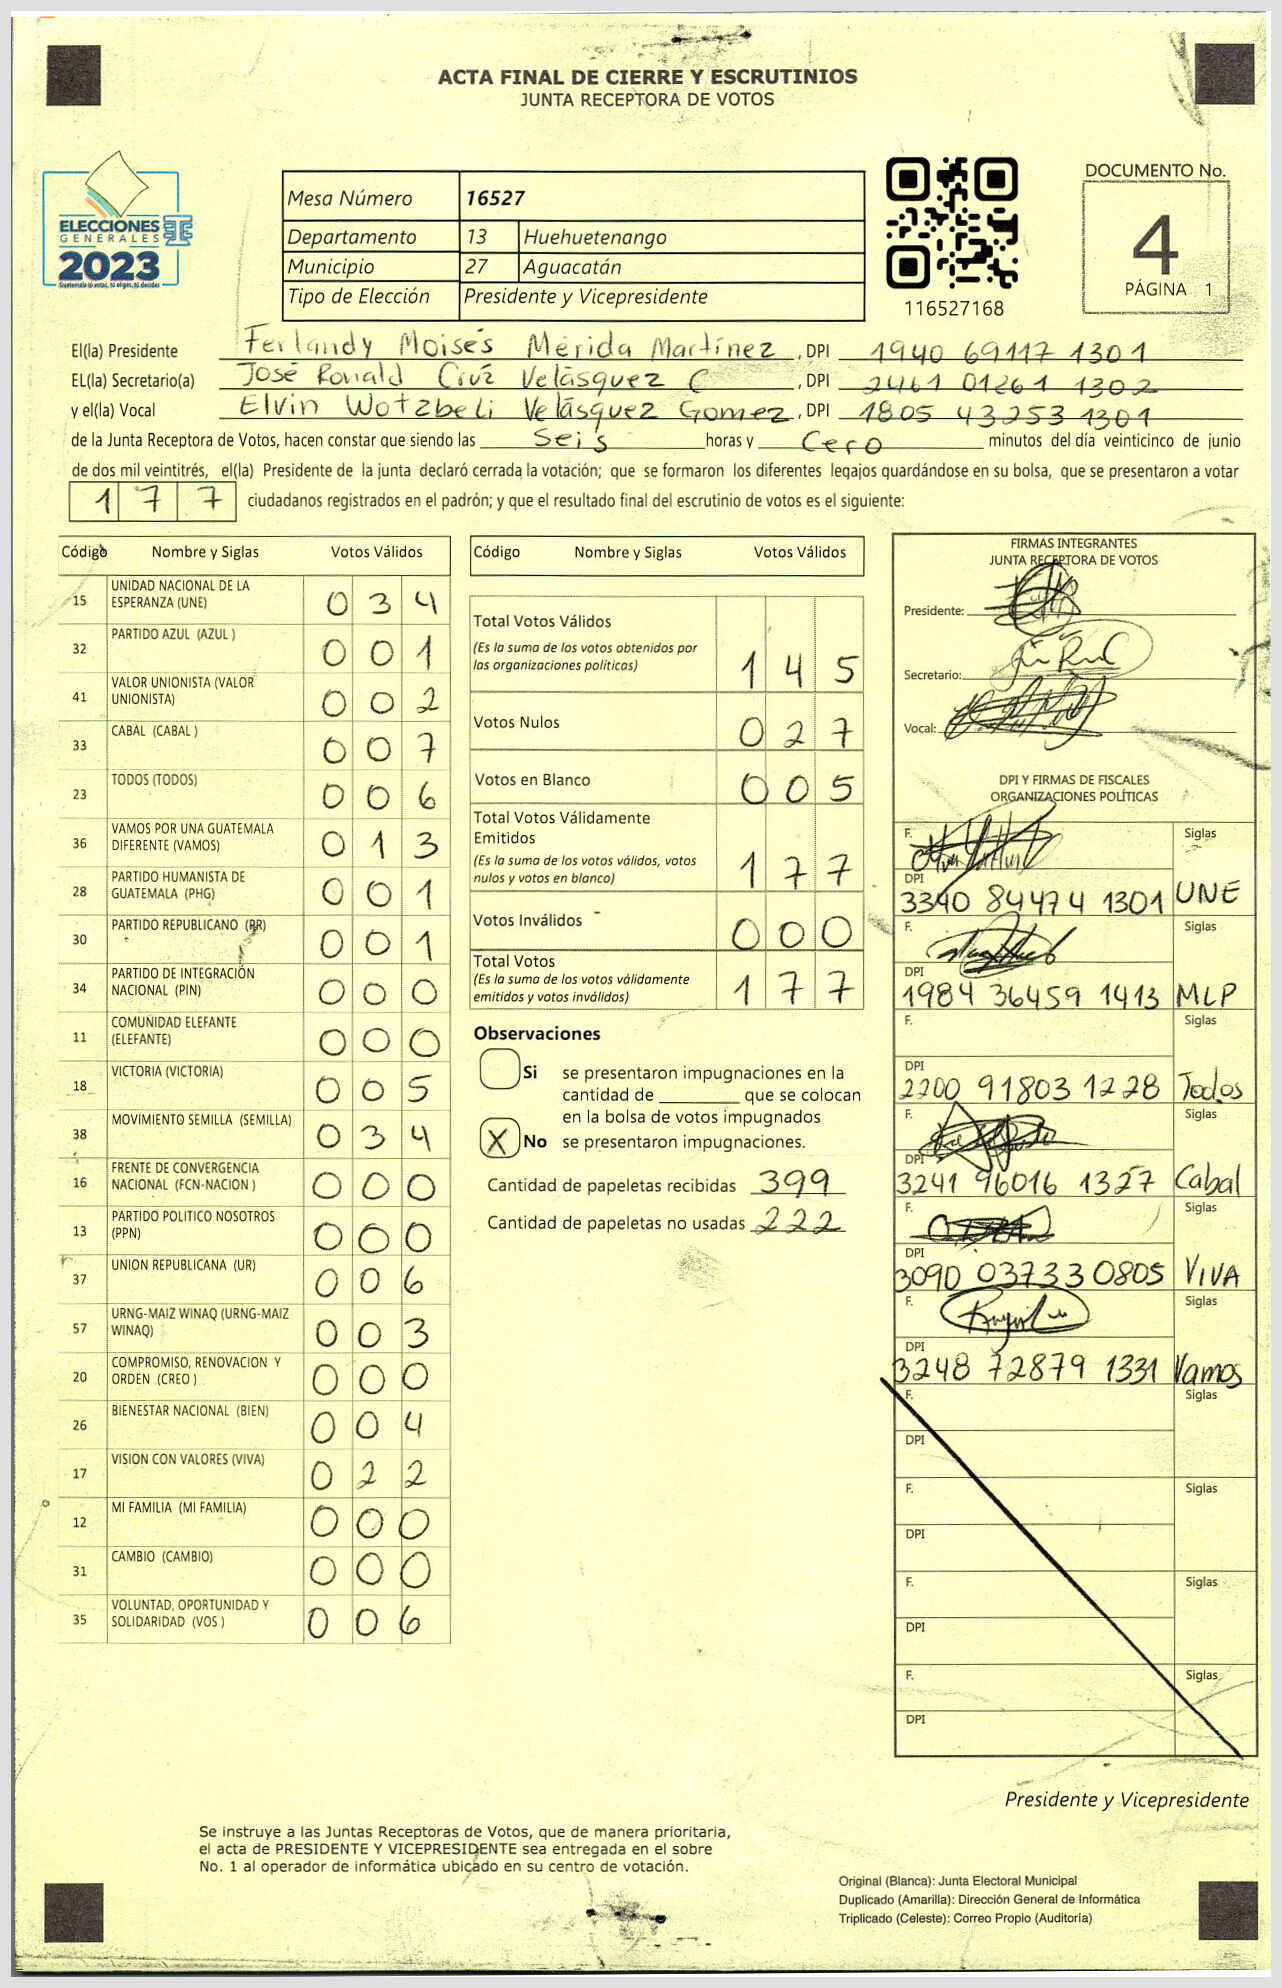 ACTA FINAL DE CIERRE Y ESCRUTINIOS
JUNTA RECEPTORA DE VOTOS
ELECCIONES
GENERALES
2023
Mesa Número 16527
Departamento 13 Huehuetenango
Municipio 27 Aguacatán
Tipo de Elección Presidente y Vicepresidente
116527168
DOCUMENTO No.
4
PÁGINA 1
El(la) Presidente Ferlandy Moisés Mérida Martínez, DPI 1940 69117 1301
EL(la) Secretario(a) José Ronald Cruz Velásquez C, DPI 2461 01261 1302
y el(la) Vocal Elvin Wotzbeli Velásquez Gomez, DPI 1805 43253 1301
de la Junta Receptora de Votos, hacen constar que siendo las Seis horas y Cero minutos del día veinticinco de junio
de dos mil veintitrés, el(la) Presidente de la junta declaró cerrada la votación; que se formaron los diferentes legajos guardándose en su bolsa, que se presentaron a votar
177 ciudadanos registrados en el padrón; y que el resultado final del escrutinio de votos es el siguiente:
Código Nombre y Siglas Votos Válidos
15 UNIDAD NACIONAL DE LA ESPERANZA (UNE) 034
32 PARTIDO AZUL (AZUL ) 001
41 VALOR UNIONISTA (VALOR UNIONISTA) 002
33 CABAL (CABAL ) 007
23 TODOS (TODOS) 006
36 VAMOS POR UNA GUATEMALA DIFERENTE (VAMOS) 013
28 PARTIDO HUMANISTA DE GUATEMALA (PHG) 001
30 PARTIDO REPUBLICANO (PR) 001
34 PARTIDO DE INTEGRACIÓN NACIONAL (PIN) 000
11 COMUNIDAD ELEFANTE (ELEFANTE) 000
18 VICTORIA (VICTORIA) 005
38 MOVIMIENTO SEMILLA (SEMILLA) 034
16 FRENTE DE CONVERGENCIA NACIONAL (FCN-NACION ) 000
13 PARTIDO POLITICO NOSOTROS (PPN) 000
37 UNION REPUBLICANA (UR) 006
57 URNG-MAIZ WINAQ (URNG-MAIZ WINAQ) 003
20 COMPROMISO, RENOVACION Y ORDEN (CREO ) 000
26 BIENESTAR NACIONAL (BIEN) 004
17 VISION CON VALORES (VIVA) 022
12 MI FAMILIA (MI FAMILIA) 000
31 CAMBIO (CAMBIO) 000
35 VOLUNTAD, OPORTUNIDAD Y SOLIDARIDAD (VOS ) 006
Código Nombre y Siglas Votos Válidos
Total Votos Válidos
(Es la suma de los votos obtenidos por
las organizaciones políticas) 145
Votos Nulos 027
Votos en Blanco 005
Total Votos Válidamente
Emitidos
(Es la suma de los votos válidos, votos
nulos y votos en blanco) 177
Votos Inválidos 000
Total Votos
(Es la suma de los votos válidamente
emitidos y votos inválidos) 177
Observaciones
Si se presentaron impugnaciones en la
cantidad de ________ que se colocan
en la bolsa de votos impugnados
X No se presentaron impugnaciones.
Cantidad de papeletas recibidas 399
Cantidad de papeletas no usadas 222
FIRMAS INTEGRANTES
JUNTA RECEPTORA DE VOTOS
Presidente:
Secretario:
Vocal:
DPI Y FIRMAS DE FISCALES
ORGANIZACIONES POLÍTICAS
F. Siglas
DPI
3340 84474 1301 UNE
F. Siglas
DPI
1984 36459 1413 MLP
F. Siglas
DPI
2200 91803 1228 Todos
F. Siglas
DPI
3241 96016 1327 Cabal
F. Siglas
DPI
3090 03733 0805 VIVA
F. Siglas
DPI
3248 72879 1331 Vamos
F. Siglas
DPI
F. Siglas
DPI
F. Siglas
DPI
F. Siglas
DPI
Presidente y Vicepresidente
Se instruye a las Juntas Receptoras de Votos, que de manera prioritaria,
el acta de PRESIDENTE Y VICEPRESIDENTE sea entregada en el sobre
No. 1 al operador de informática ubicado en su centro de votación.
Original (Blanca): Junta Electoral Municipal
Duplicado (Amarilla): Dirección General de Informática
Triplicado (Celeste): Correo Propio (Auditoría)